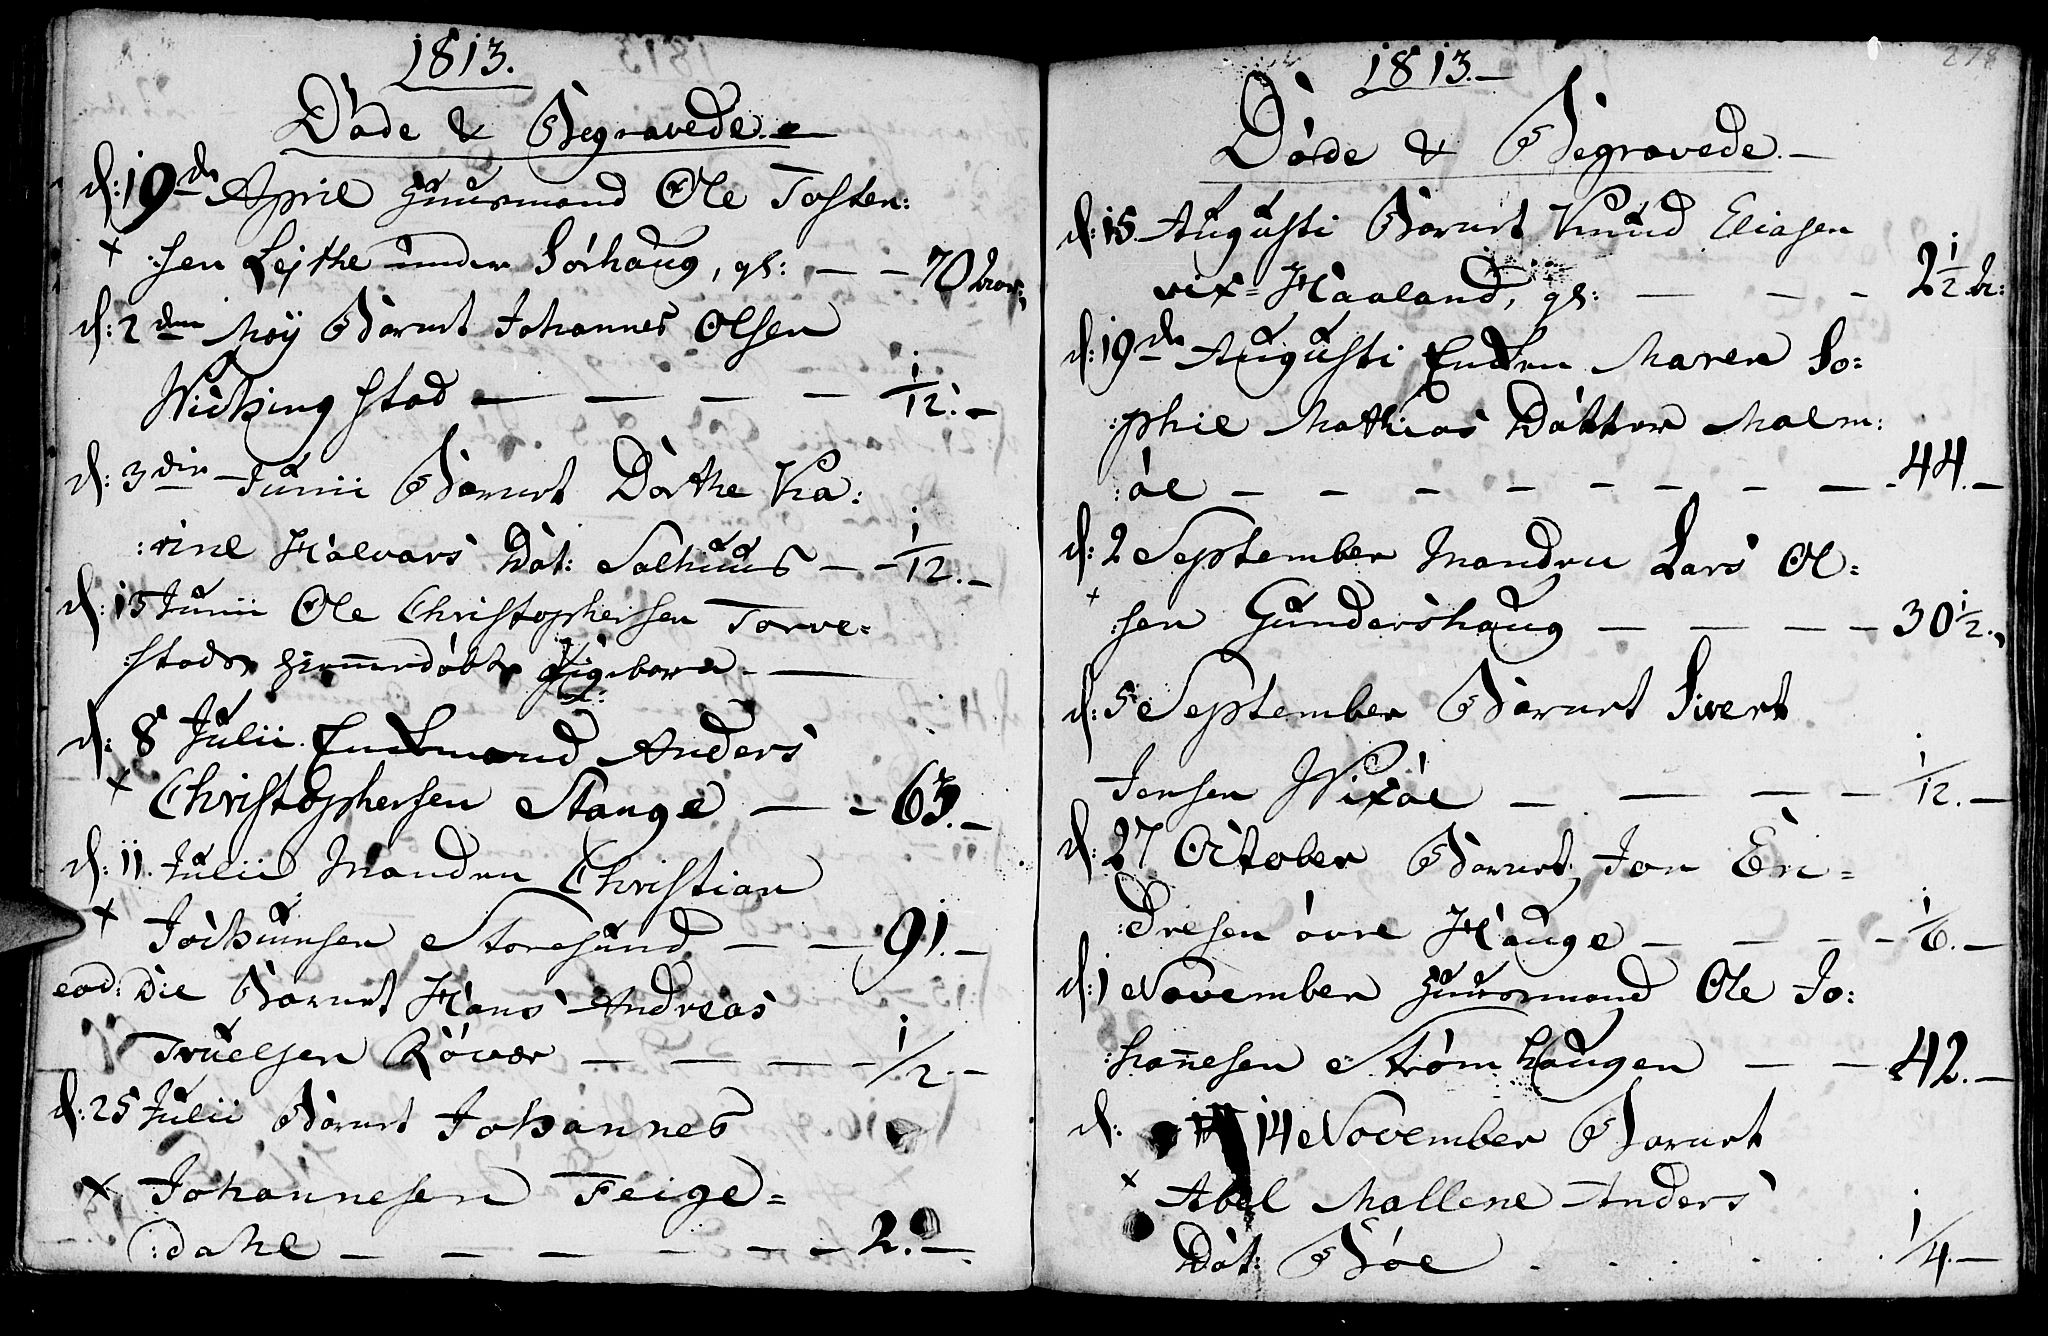 1813.
Døde & Begravede.
d: 19de April Huusmand Ole Tosten:
:sen Lejthe under Sørhaug, gl: — — 70
d: 2den Maÿ Barnet Johannes Olsen
Wichingstad — — — — 1/12. —
d: 3die Junii Barnet Dorthe Ka:
:rine Halvars Dat: Salhuus — — 1/12. —
d: 13 Junii Ole Christophersen Torve=
:stads hiemmedøbte —
d: 8 Julii Enkemand Anders
+ Christophersen Stange — — 63. —
d: 11. Julii Manden Christian
+ Jochumsen Storesund — — 91. —
eod: die Barnet Hans Andreas
Truelsen Røvær — — — — 1/2. —
d: 25 Julii Barnet Johannes
+ Johannesen Feige=
:dahl — — — — — — 2. —
278
1813. —
Døde & Begravede. —
d: 15 Augusti Barnet Knud Eliasen
vix= Haaland, gl: — — — 2 1/2
d: 19de Augusti Enken Maren So=
:phie Mathias Datter Malm:
:øe — — — — — — — — 44. —
d: 2 September Manden Lars Ol=
+ :sen Gundershaug — — — — 30 1/2.
d: 5 September Barnet Sivert
Jensen Vixøe — — — — 1/12. —
d: 27 October Barnet Jon En=
:dresen øvre Hauge — — — — 1/6. —
d: 1 November Huusmand Ole Jo:
:hannesen Strømhaugen — — 42. —
d: 14 November Barnet
+ Abel Mallene Anders
Dat: Bøe . . . . . 1/4. —